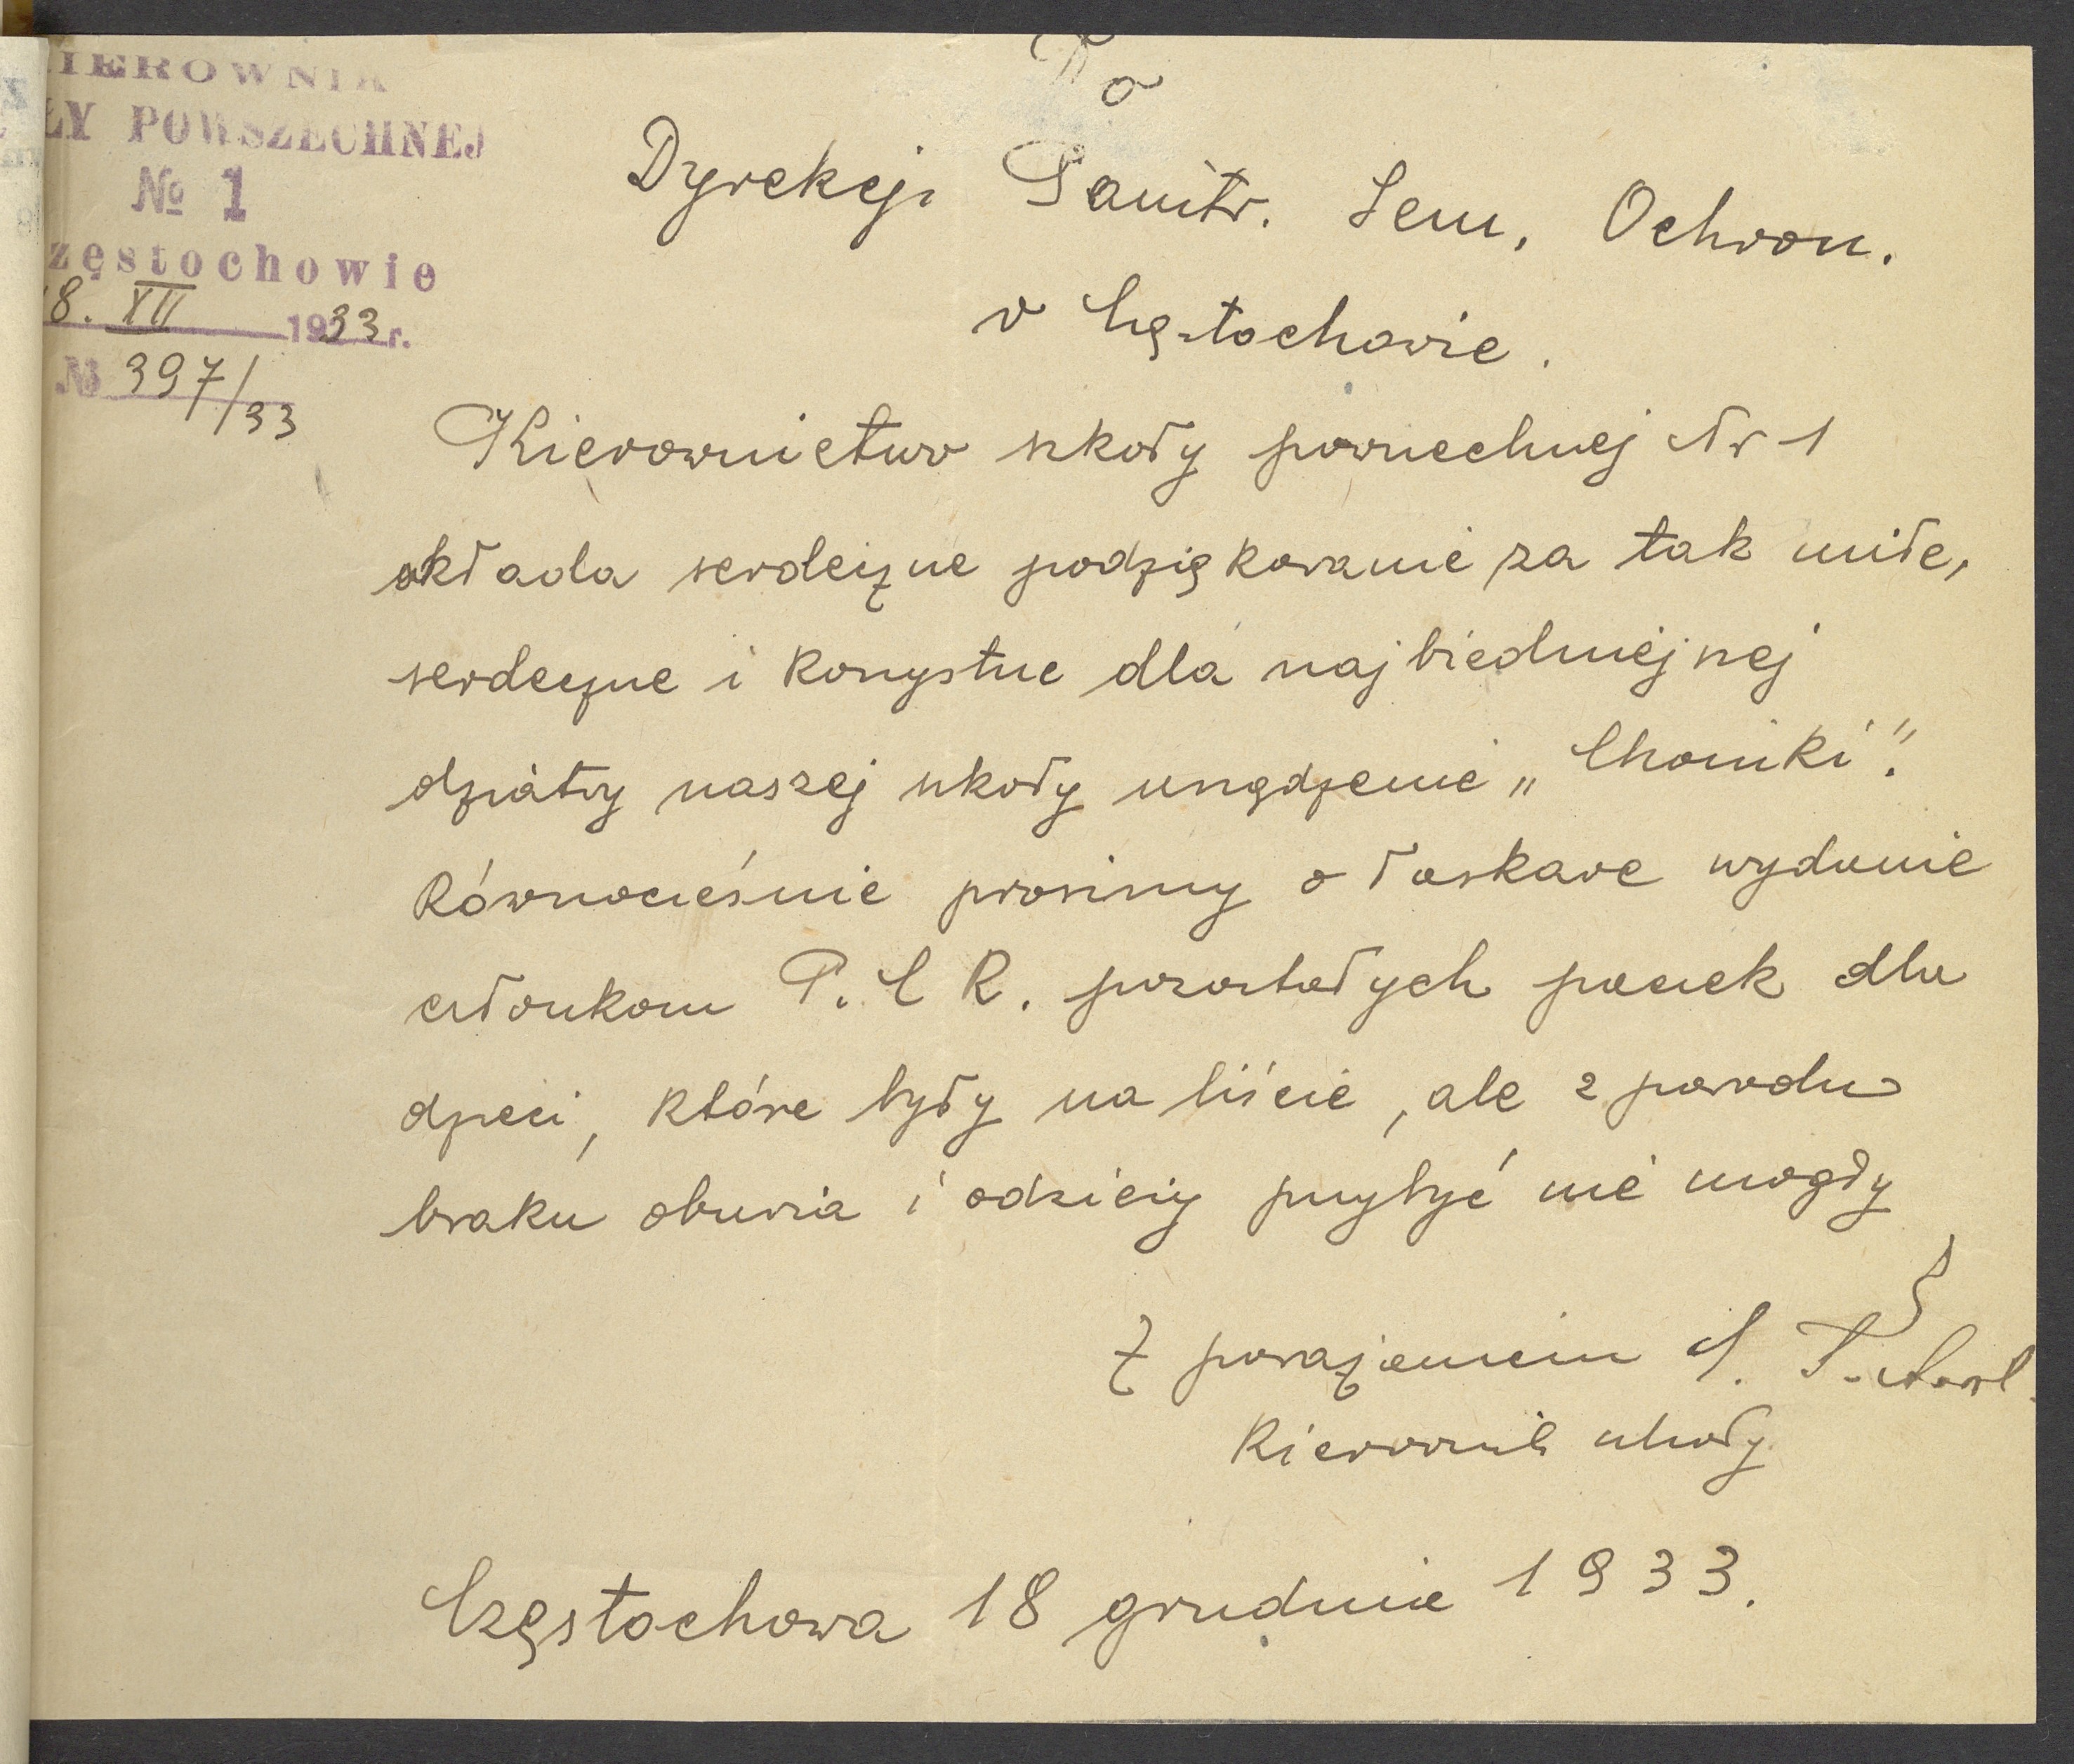 KIEROWNIK
ŁY POWSZECHNEJ
№ 1
zęstochowie
18. XII 1933 r.
№ 397/33
Do
Dyrekcji Państw. Sem. Ochron.
w Częstochowie.
Kierownictwo szkoły powszechnej Nr 1
składa serdeczne podziękowanie za tak miłe,
serdeczne i korzystne dla najbiedniejszej
dziatwy naszej szkoły urządzenie „Choinki".
Równocześnie prosimy o łaskawe wydanie
członkom P. C K. pozostałych paczek dla
dzieci, które były na liście, ale z powodu
braku obuwia i odzieży przybyć nie mogły
Z poważaniem
Kierownik szkoły
Częstochowa 18 grudnia 1933.